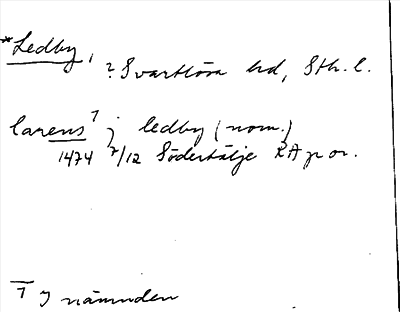 *Ledby, ? Svartlösa hd, Sth. l.
larens ⁊ j ledby (nom.)
1474 7/12 Södertälje RA p or.
⁊ j nämnden